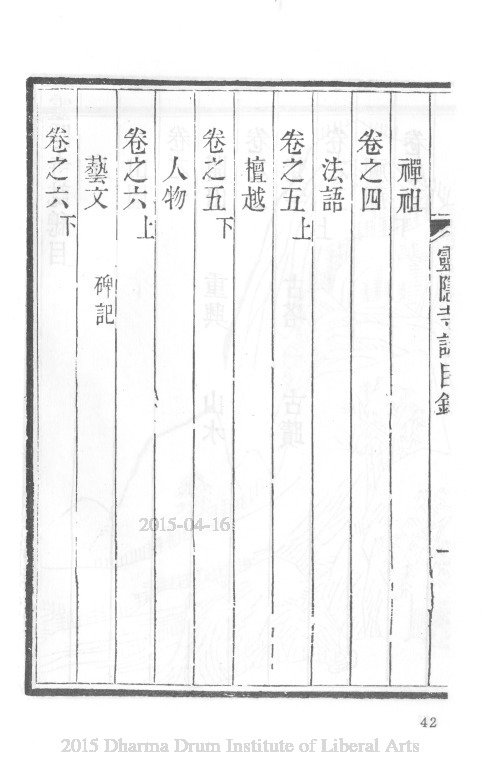 靈隱寺誌目錄
一
禪祖
卷之四
法語
卷之五上
檀越
卷之五下
人物
卷之六上
藝文 碑記
卷之六下
2015-04-16
42
2015 Dharma Drum Institute of Liberal Arts